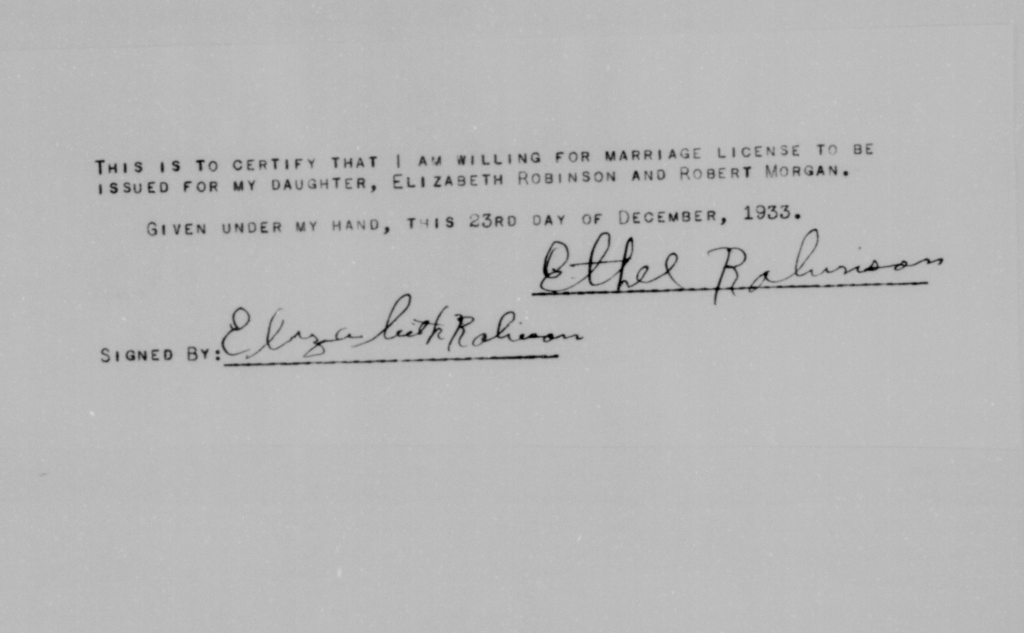 THIS IS TO CERTIFY THAT I AM WILLING FOR MARRIAGE LICENSE TO BE
ISSUED FOR MY DAUGHTER, ELIZABETH ROBINSON AND ROBERT MORGAN.
GIVEN UNDER MY HAND, THIS 23RD DAY OF DECEMBER, 1933.
Ethel Robinson
SIGNED BY: Elizabeth Robinson